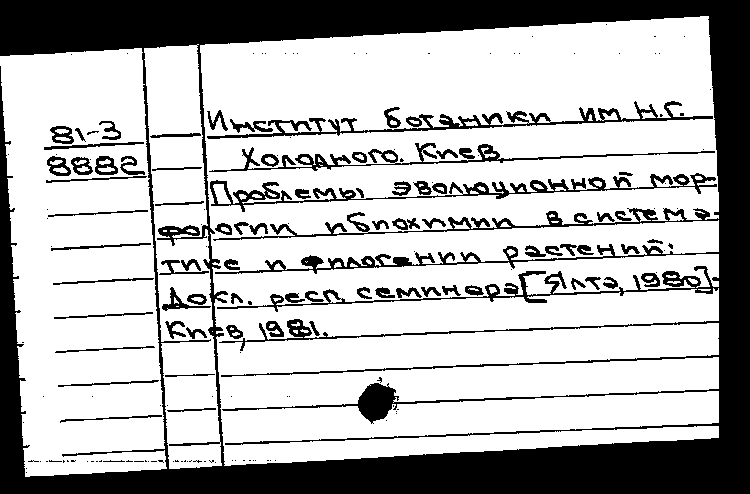 81-3
8882
Институт ботаники им. Н.Г.
Холодного. Киев.
Проблемы эволюционной мор-
фологии и биохимии в система-
тике и филогении растений:
Докл. респ. семинара [Ялта, 1980].-
Киев, 1981.